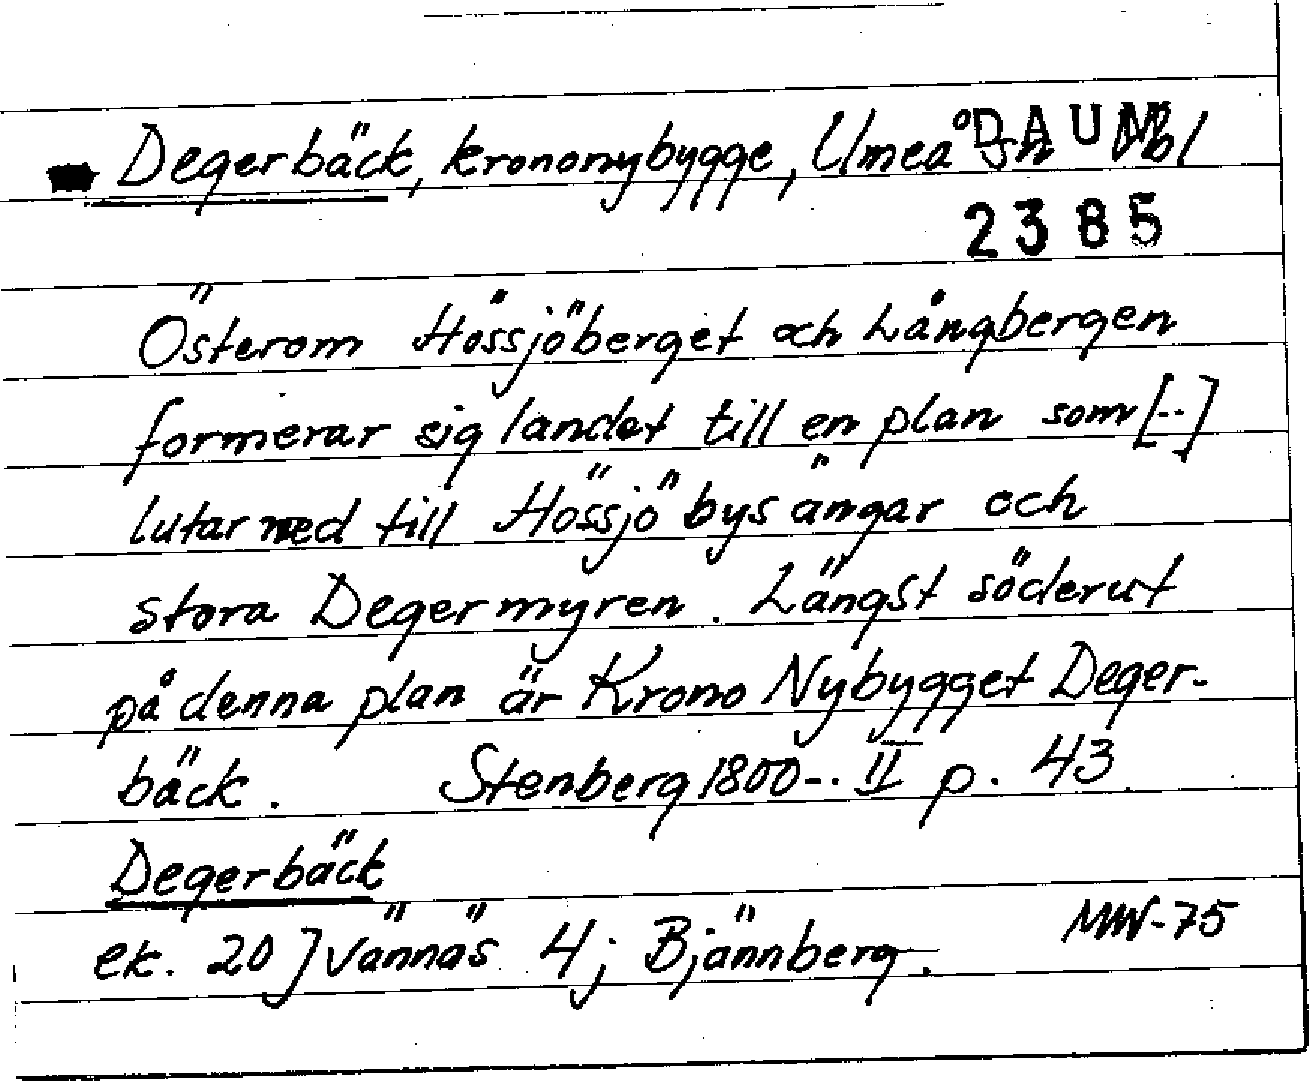 Degerbäck, krononybygge, Umeå sn Vbl
DAUM
2385
Österom Hössjöberget och Långbergen
formerar sig landet till en plan som [--]
lutar ned till Hössjö bys ängar och
stora Degermyren. Längst söderut
på denna plan är Krono Nybygget Deger-
bäck. Stenberg 1800-. II p. 43
Degerbäck
ek. 20 J Vännäs 4; Bjännberg.
MW-75